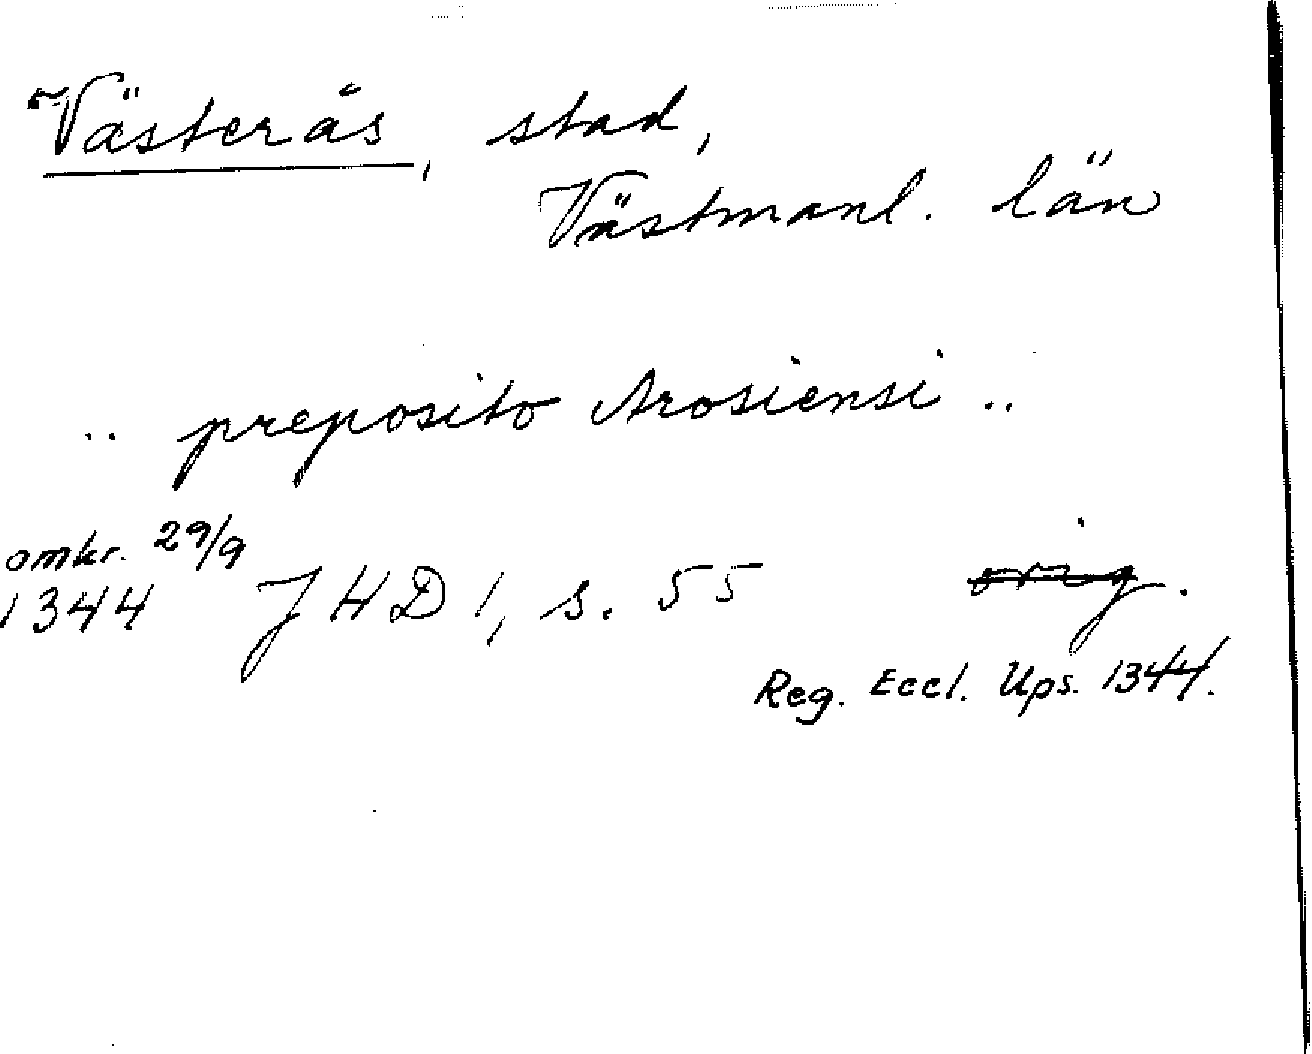 Västerås, stad,
Västmanl. län
.. preposito Arosiensi ..
omkr. 29/9
1344 JHD 1, s. 55 orig.
Reg. Eccl. Ups. 1344.